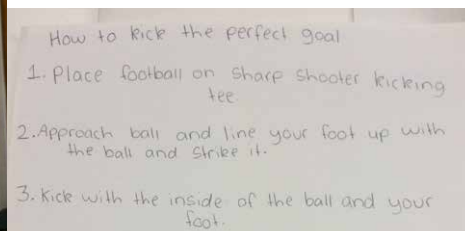 How to kick the perfect goal
1. Place football on Sharp Shooter kicking
tee.
2. Approach ball and line your foot up with
the ball and Strike it.
3. Kick with the inside of the ball and your
foot.